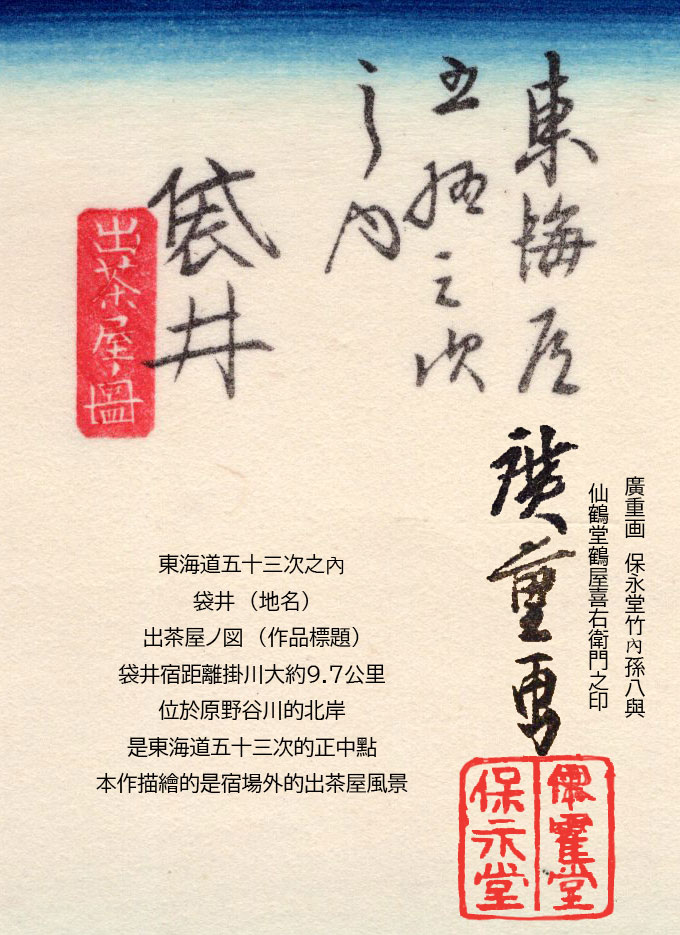 東海道
五拾三次
之内
袋井
出茶屋ノ圖
廣重画
廣重画 保永堂竹內孫八與
仙鶴堂鶴屋喜右衛門之印
東海道五十三次之內
袋井（地名）
出茶屋ノ図（作品標題）
袋井宿距離掛川大約9.7公里
位於原野谷川的北岸
是東海道五十三次的正中點
本作描繪的是宿場外的出茶屋風景
僊鶴堂
保永堂